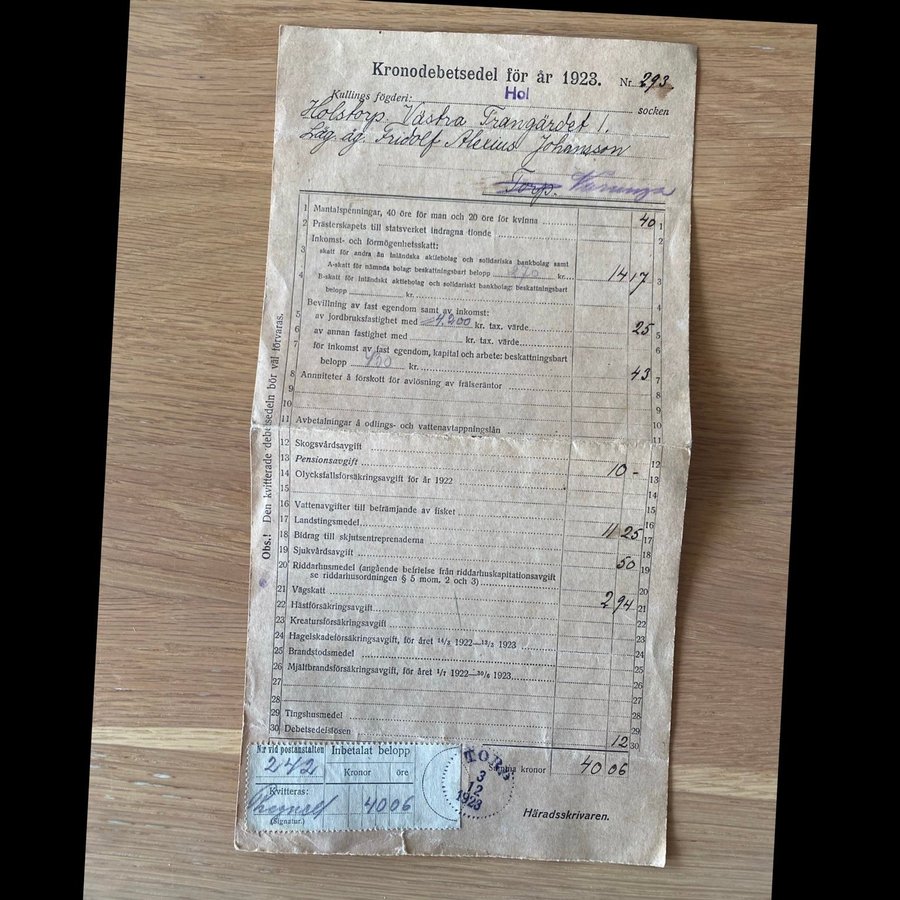 Kronodebetsedel för år 1923. Nr 293.
Kullings fögderi: Hol socken
Holstorp Västra Trangärdet 1.
Läg. äg. Fridolf Alexius Johansson
Torp.
1 Mantalspenningar, 40 öre för man och 20 öre för kvinna 40 1
2 Prästerskapets till statsverket indragna tionde 2
Inkomst- och förmögenhetsskatt:
3 skatt för andra än inländska aktiebolag och solidariska bankbolag samt
A-skatt för nämnda bolag: beskattningsbart belopp kr. 14 17 3
4 B-skatt för inländskt aktiebolag och solidariskt bankbolag: beskattningsbart
belopp kr. 4
Bevillning av fast egendom samt av inkomst:
5 av jordbruksfastighet med 4,200 kr. tax. värde 25 5
6 av annan fastighet med kr. tax. värde 6
7 för inkomst av fast egendom, kapital och arbete: beskattningsbart
belopp kr. 43 7
8 Annuiteter å förskott för avlösning av frälseräntor
9
10
11 Avbetalningar å odlings- och vattenavtappningslån 11
12 Skogsvårdsavgift 12
13 Pensionsavgift 10 - 13
14 Olycksfallsförsäkringsavgift för år 1922 14
15 15
16 Vattenavgifter till befrämjande av fisket 16
17 Landstingsmedel 11 25 17
18 Bidrag till skjutsentreprenaderna 18
19 Sjukvårdsavgift 50 19
20 Riddarhusmedel (angående befrielse från riddarhuskapitationsavgift
se riddarhusordningen § 5 mom. 2 och 3) 20
21 Vägskatt 2 94 21
22 Hästförsäkringsavgift 22
23 Kreatursförsäkringsavgift 23
24 Hagelskadeförsäkringsavgift, för året 14/5 1922—13/5 1923 24
25 Brandstodsmedel 25
26 Mjältbrandsförsäkringsavgift, för året 1/7 1922—30/6 1923 26
27 27
28 28
29 Tingshusmedel 29
30 Debetsedelslösen 12 30
Summa kronor 40 06
Häradsskrivaren.
Obs.! Den kvitterade debetsedeln bör väl förvaras.
Nr vid postanstalten Inbetalat belopp
242 Kronor öre
Kvitteras: 40 06
(Signatur.)
TORP
3
12
1923